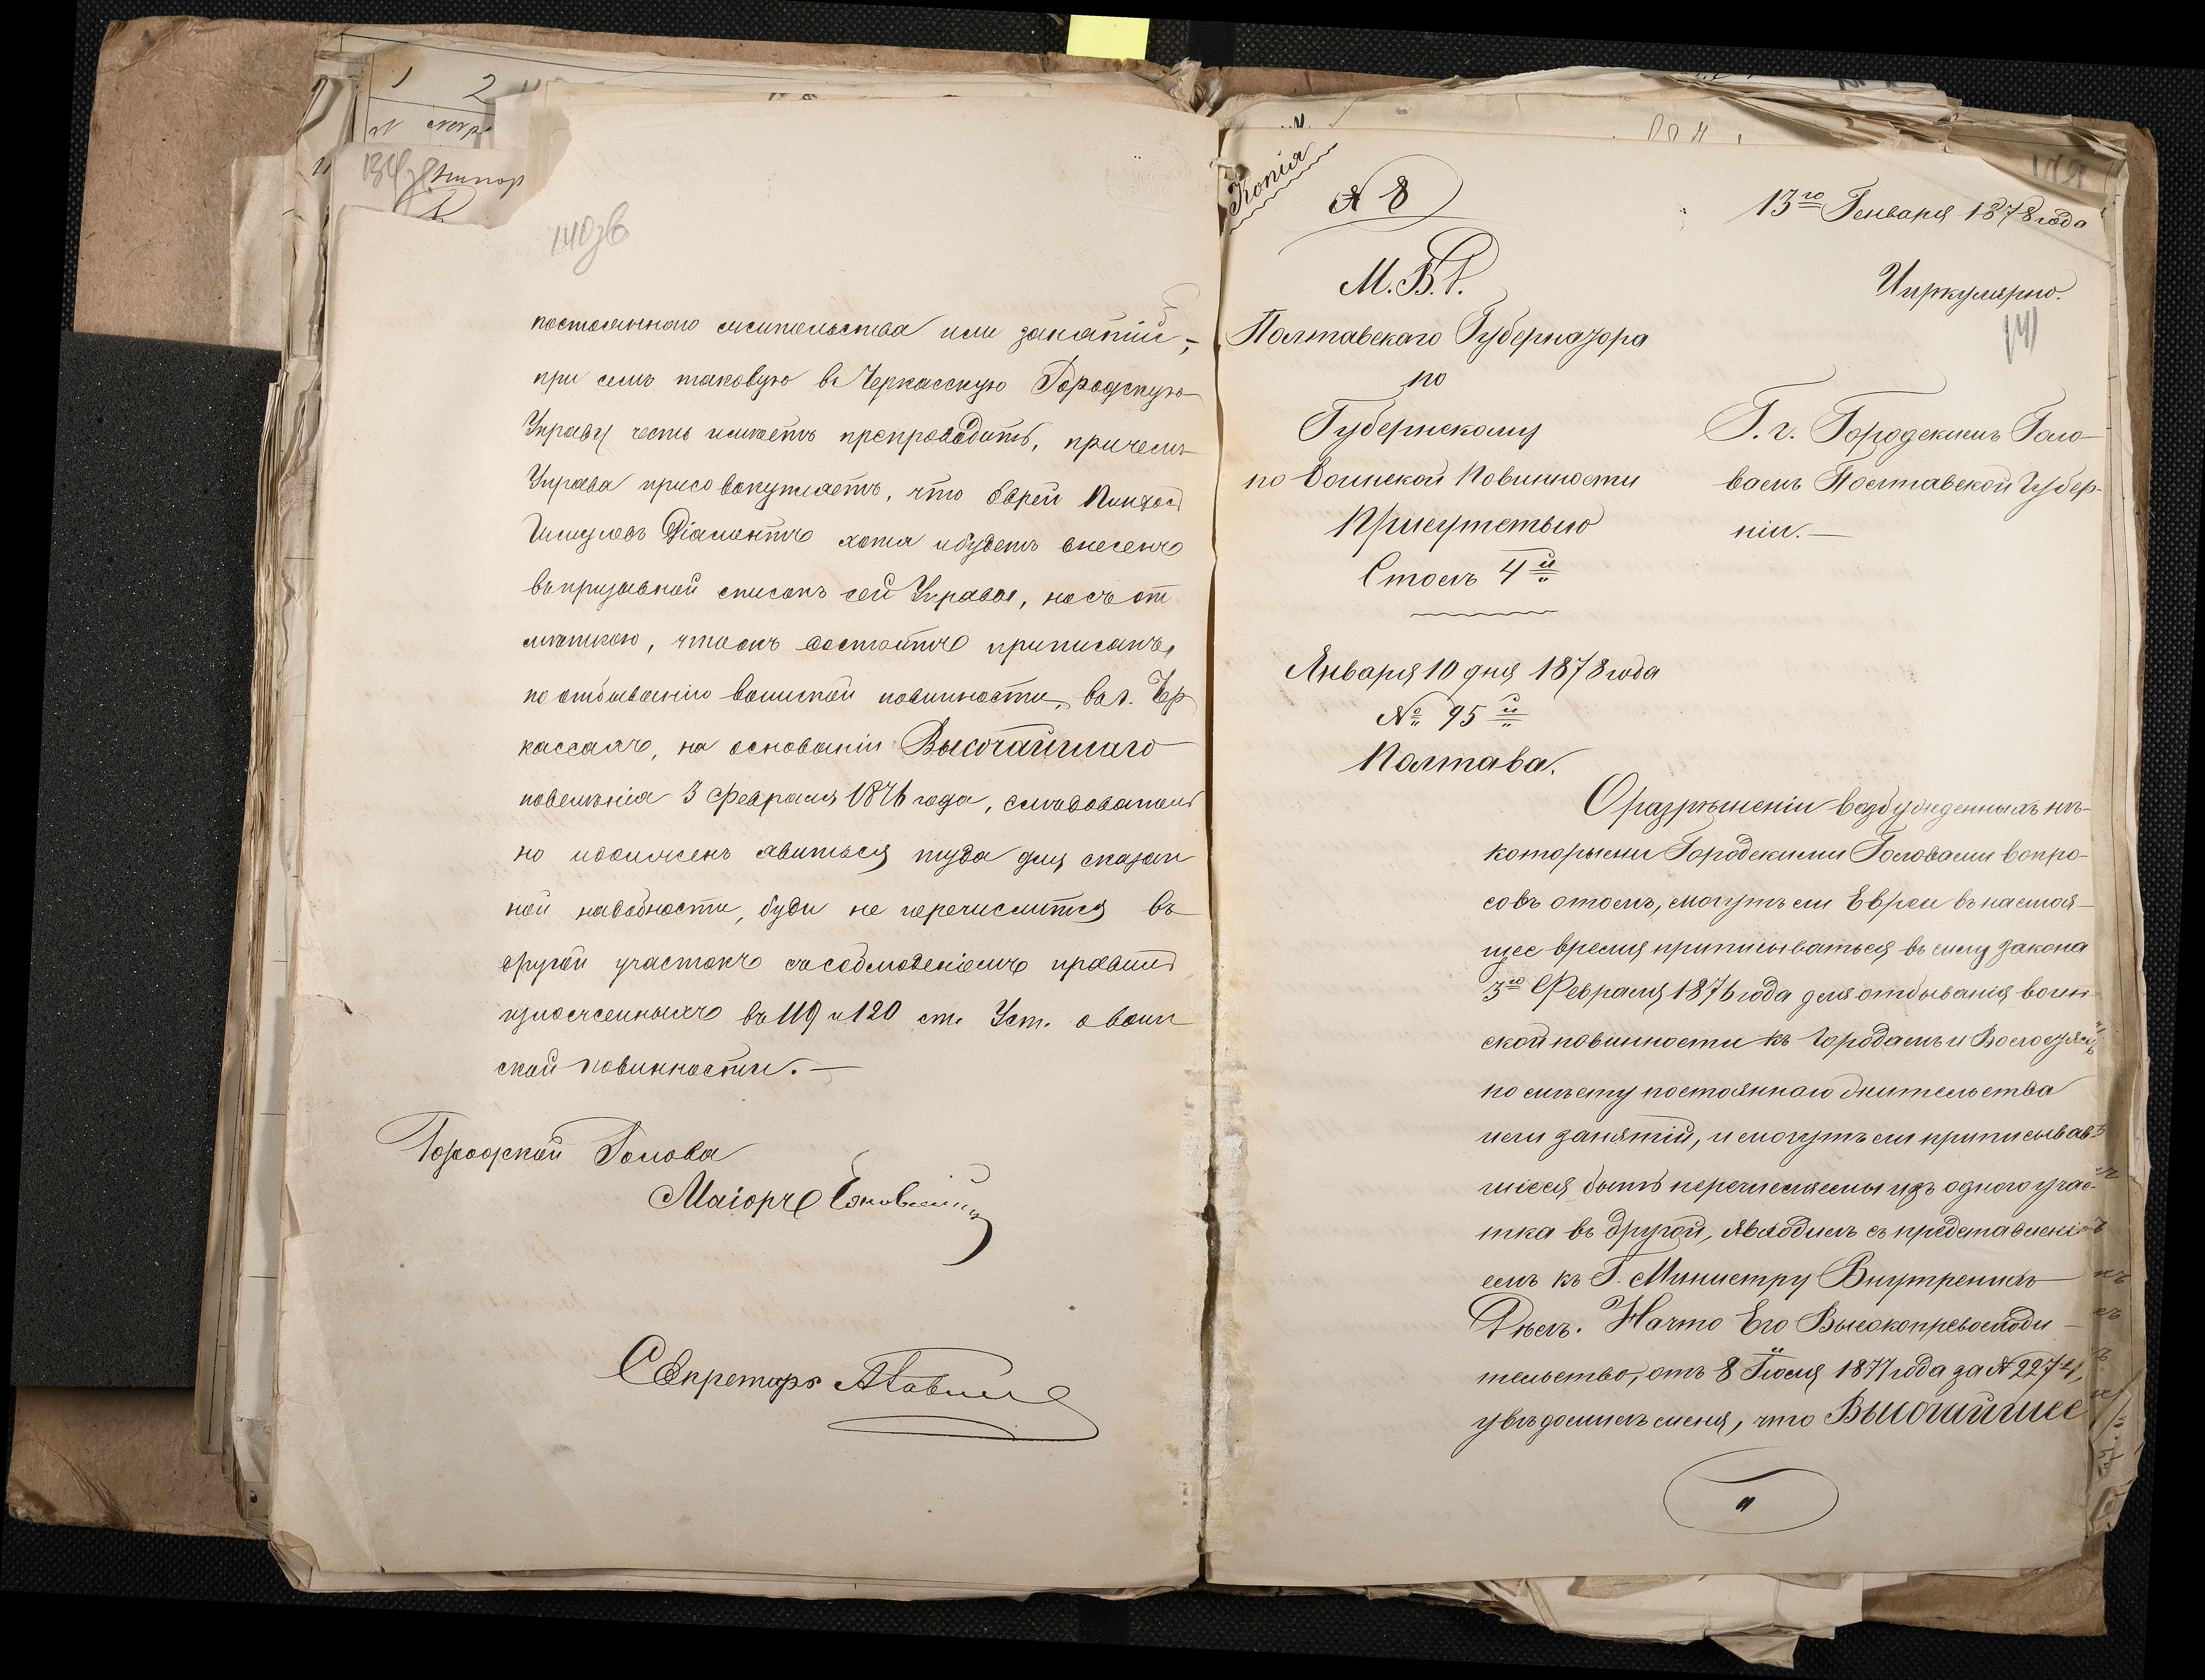 140зв
постояннаго жительства или занятій,
при семъ таковую въ Черкасскую Городскую
Управу честь имѣетъ препроводить, причемъ
Управа присовокупляетъ, что еврей Пинхос
Діамонтъ хотя и будетъ внесенъ
въ призывной списокъ сей Управы, но съ от
мѣткою, что онъ состоитъ приписанъ,
по отбыванію воинской повинности, въ г. Чер
кассахъ, на основаніи Высочайшаго
повелѣнія 3 февраля 1876 года, слѣдователь
но и долженъ явиться туда для сказан
ной надобности, буди не перечислится въ
другой участокъ съ соблюденіемъ правил
изложенныхъ въ 119 и 120 ст. Уст. о воин
ской повинности.—
Городской Голова
Маіоръ
Секретарь
Копія
№ 8
13го Генваря 1878 года
М.В.Д.
Циркулярно.
141
Полтавскаго Губернатора
по
Губернскому
по Воинской Повинности
Присутствію
Столъ 4й
Г.г. Городскимъ Голо-
вамъ Полтавской Губер-
ніи.—
Января 10 дня 1878 года
№ 95й
Полтава.
О разрѣшеніи возбужденныхъ нѣ-
которыми Городскими Головами вопро-
совъ о томъ, могутъ ли Евреи въ настоя-
щее время приписываться въ силу закона
3го Февраля 1876 года для отбыванія воин-
ской повинности къ Городамъ и Волостямъ
по мѣсту постояннаго жительства
или занятій, и могутъ ли приписывав-
шіеся быть перечисляемы изъ одного учас-
тка въ другой, я входилъ съ представлені-
емъ къ Г. Министру Внутреннихъ
Дѣлъ. На что Его Высокопревосходи-
тельство, отъ 8 Іюля 1877 года за № 2274,
увѣдомилъ меня, что Высочайшее